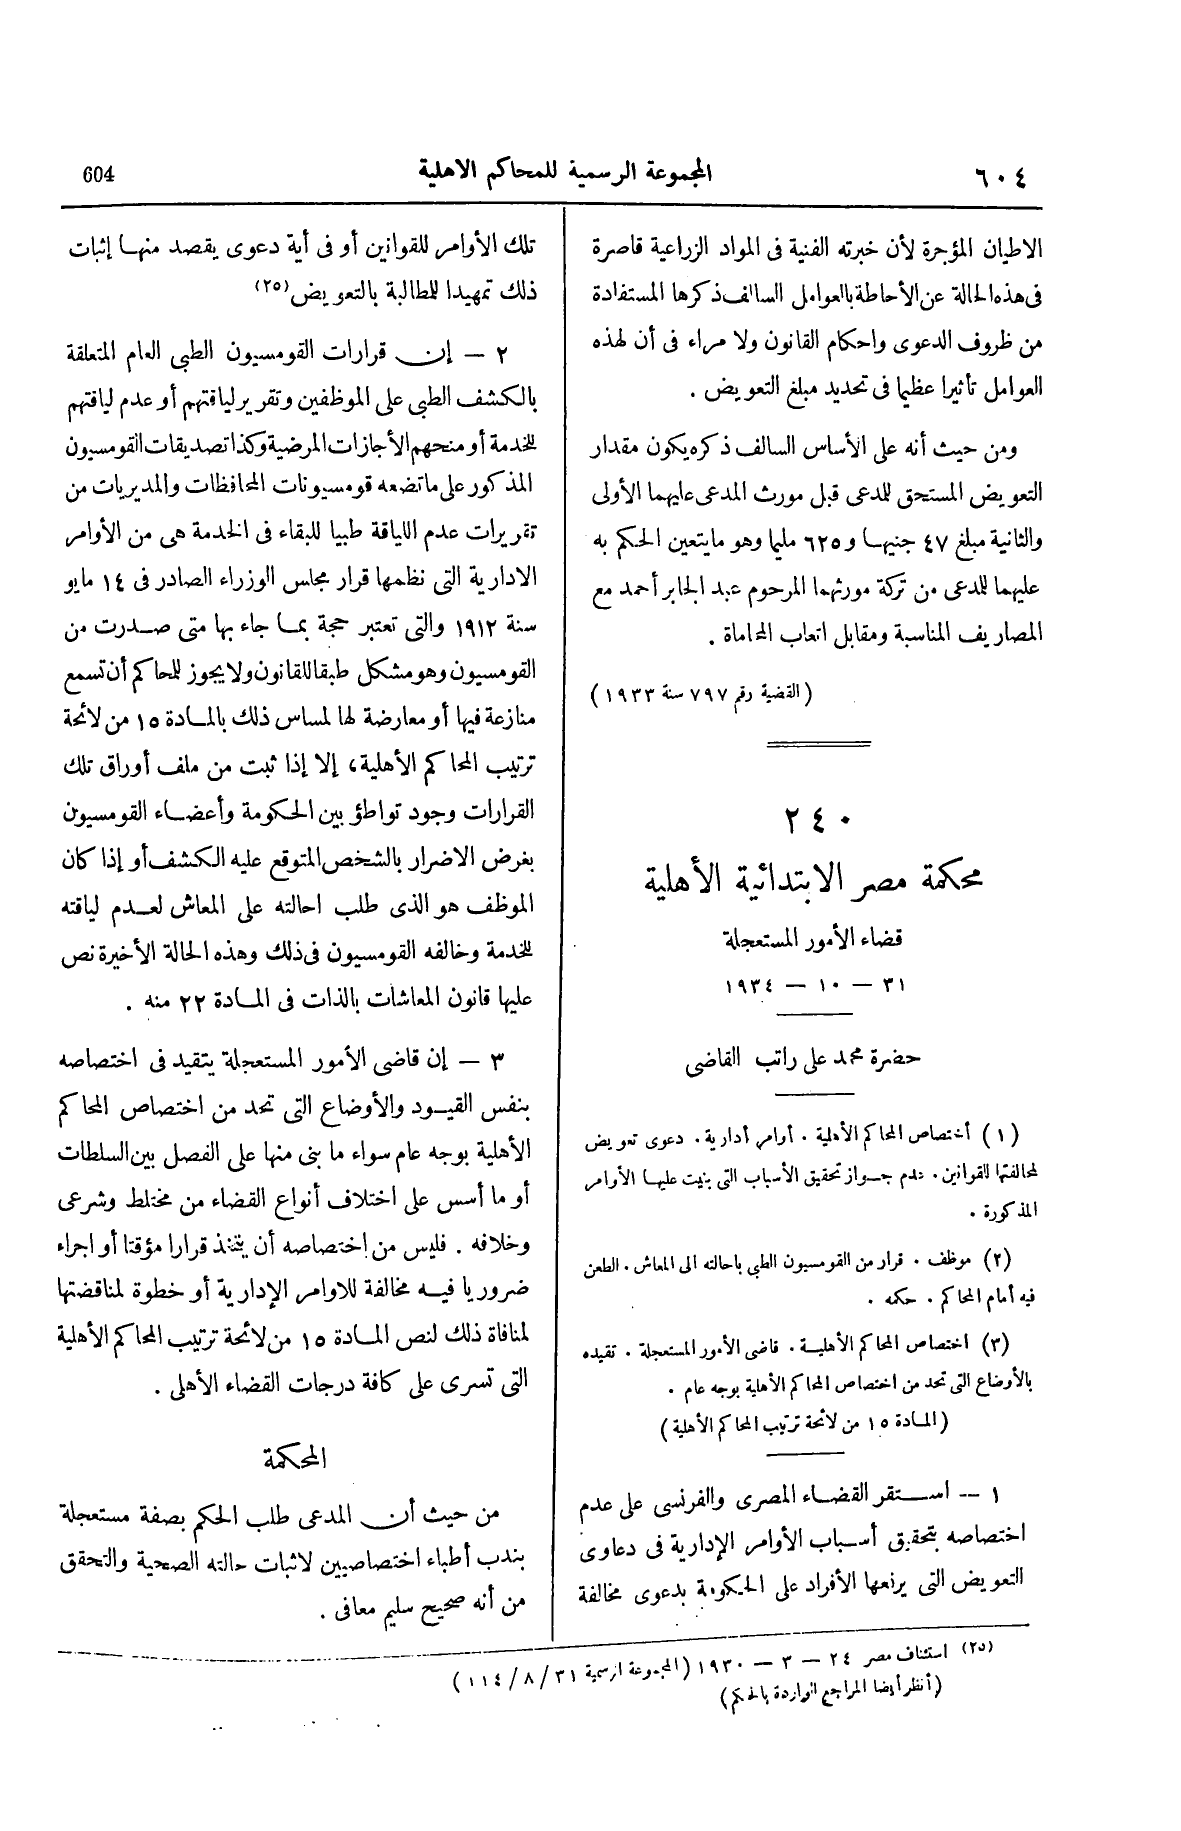 ٦٠٤
المجموعة الرسمية للمحاكم الاهلية
604
الاطيان المؤجرة لأن خبرته الفنية فى المواد الزراعية قاصرة
فى هذه الحالة عن الأحاطة بالعوامل السالف ذكرها المستفادة
من ظروف الدعوى واحكام القانون ولا مراء فى أن لهذه
العوامل تأثيرا عظيما فى تحديد مبلغ التعويض .
ومن حيث أنه على الأساس السالف ذكره يكون مقدار
التعويض المستحق للمدعى قبل مورث المدعى عليهما الأولى
والثانية مبلغ ٤٧ جنيها و٦٢٥ مليما وهو مايتعين الحكم به
عليهما للمدعى من تركة مورثهما المرحوم عبد الجابر أحمد مع
المصاريف المناسبة ومقابل اتعاب المحاماة .
(القضية رقم ٧٩٧ سنة ١٩٣٣)
٢٤٠
محكمة مصر الابتدائية الأهلية
قضاء الأمور المستعجلة
٣١ – ١٠ – ١٩٣٤
حضرة محمد على راتب القاضى
(١) أختصاص المحاكم الأهلية . أوامر أدارية . دعوى تعويض
لمخالفتها القوانين . عدم جواز تحقيق الأسباب التى بنيت عليها الأوامر
المذكورة .
(٢) موظف . قرار من القومسيون الطبى باحالته الى المعاش . الطعن
فيه أمام المحاكم . حكمه .
(٣) أختصاص المحاكم الأهلية . قاضى الأمور المستعجلة . تقيده
بالأوضاع التى تحد من اختصاص المحاكم الأهلية بوجه عام .
(المادة ١٥ من لائحة ترتيب المحاكم الأهلية)
١ – استقر القضاء المصرى والفرنسى على عدم
اختصاصه بتحقيق أسباب الأوامر الإدارية فى دعاوى
التعويض التى يرفعها الأفراد على الحكومة بدعوى مخالفة
تلك الأوامر للقوانين أو فى أية دعوى يقصد منها إثبات
ذلك تمهيدا للطالبة بالتعويض(٢٥)
٢ – إن قرارات القومسيون الطبى العام المتعلقة
بالكشف الطبى على الموظفين وتقرير لياقتهم أو عدم لياقتهم
للخدمة أو منحهم الأجازات المرضية وكذا تصديقات القومسيون
المذكور على ماتضعه قومسيونات المحافظات والمديريات من
تقريرات عدم اللياقة طبيا للبقاء فى الخدمة هى من الأوامر
الادارية التى نظمها قرار مجلس الوزراء الصادر فى ١٤ مايو
سنة ١٩١٢ والتى تعتبر حجة بما جاء بها متى صدرت من
القومسيون وهو مشكل طبقا للقانون ولا يجوز للمحاكم أن تسمع
منازعة فيها أو معارضة لها لمساس ذلك بالمادة ١٥ من لائحة
ترتيب المحاكم الأهلية، إلا إذا ثبت من ملف أوراق تلك
القرارات وجود تواطؤ بين الحكومة وأعضاء القومسيون
بغرض الاضرار بالشخص المتوقع عليه الكشف أو إذا كان
الموظف هو الذى طلب احالته على المعاش لعدم لياقته
للخدمة وخالفه القومسيون فى ذلك وهذه الحالة الأخيرة نص
عليها قانون المعاشات بالذات فى المادة ٢٢ منه .
٣ – إن قاضى الأمور المستعجلة يتقيد فى اختصاصه
بنفس القيود والأوضاع التى تحد من اختصاص المحاكم
الأهلية بوجه عام سواء ما بنى منها على الفصل بين السلطات
أو ما أسس على اختلاف أنواع القضاء من مختلط وشرعى
وخلافه . فليس من إختصاصه أن يتخذ قرارا مؤقتا أو اجراء
ضروريا فيه مخالفة للاوامر الإدارية أو خطوة لمناقضتها
لمنافاة ذلك لنص المادة ١٥ من لائحة ترتيب المحاكم الأهلية
التى تسرى على كافة درجات القضاء الأهلى .
المحكمة
من حيث أن المدعى طلب الحكم بصفة مستعجلة
بندب أطباء اختصاصيين لاثبات حالته الصحية والتحقق
من أنه صحيح سليم معافى .
(٢٥) استئناف مصر ٢٤ – ٣ – ١٩٣٠ (المجموعة الرسمية ٣١/٨/١١٤)
(أنظر أيضا المراجع الواردة بالحكم)